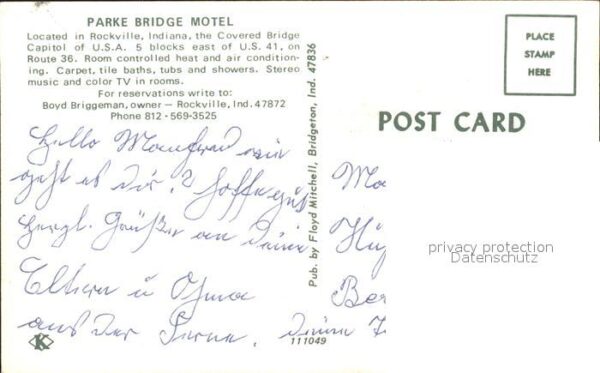 PARKE BRIDGE MOTEL
Located in Rockville, Indiana, the Covered Bridge
Capitol of U.S.A. 5 blocks east of U.S. 41, on
Route 36. Room controlled heat and air condition-
ing. Carpet, tile baths, tubs and showers. Stereo
music and color TV in rooms.
For reservations write to:
Boyd Briggeman, owner — Rockville, Ind. 47872
Phone 812 - 569-3525
Hello Manfred wie
geht es Dir? Hoffe gut
Herzl. Grüße an Deine
Eltern u Oma
aus der Ferne. Deine
Pub. by Floyd Mitchell, Bridgeton, Ind. 47836
111049
K
PLACE
STAMP
HERE
POST CARD
Ma
Ber
privacy protection
Datenschutz